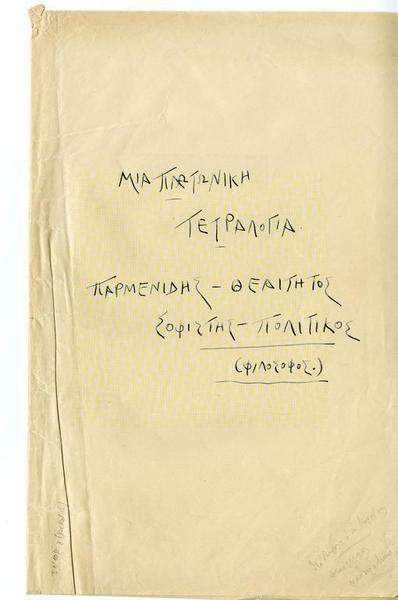 ΜΙΑ ΠΛΑΤΩΝΙΚΗ
ΤΕΤΡΑΛΟΓΙΑ.
ΠΑΡΜΕΝΙΔΗΣ – ΘΕΑΙΤΗΤΟΣ
ΣΟΦΙΣΤΗΣ – ΠΟΛΙΤΙΚΟΣ
(ΦΙΛΟΣΟΦΟΣ.)